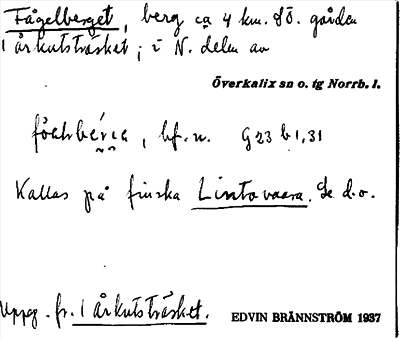 Fågelberget, berg ca 4 km. SÖ. gården
1 årkutsträsket; i N. delen av
Överkalix sn o. tg Norrb. l.
bf. n. G23 b 1,31
Kallas på finska Lintovaara. Se d.o.
Uppg. fr. 1 årkutsträsket.
EDVIN BRÄNNSTRÖM 1937